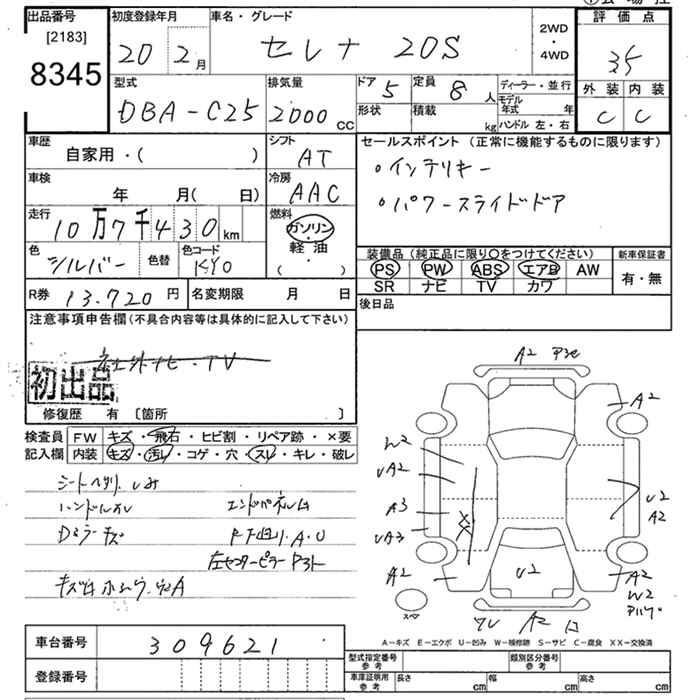 出品番号
[2183]
8345
初度登録年月
20 2月
車名・グレード
セレナ 20S
2WD
・
4WD
評価点
3.5
外装 内装
C C
型式
DBA-C25
排気量
2000 CC
ドア 5
定員 8人
形状
積載 kg
ディーラー・並行
モデル年式 年
ハンドル 左・右
車歴
自家用・( )
シフト
AT
セールスポイント (正常に機能するものに限ります)
・インテリキー
・パワースライドドア
車検
年 月( 日)
冷房
AAC
走行
10万7千430km
燃料
ガソリン
・
軽・油
( )
色
シルバー
色替
色コード
KY0
装備品 (純正品に限り○をつけてください)
PS PW ABS エアB AW
SR ナビ TV カワ
新車保証書
有・無
R券 13.720円
名変期限 月 日
後日品
注意事項申告欄 (不具合内容等は具体的に記入して下さい)
社外ナビ・TV
初出品
修復歴 有 〔箇所 〕
検査員 FW キズ・飛石・ヒビ割・リペア跡・×要
記入欄 内装 キズ・汚レ・コゲ・穴・スレ・キレ・破レ
シートヘタリ、シミ
ハンドルスレ
エンドパネルム
A2
A2
W2
UA2
A3
UA3
A2
U2
A2
U2
A2
W2
A2
スペア
A-キズ E-エクボ U-凹み W-補修跡 S-サビ C-腐食 XX-交換済
車台番号 309621
登録番号
型式指定番号
参考
類別区分番号
参考
車庫証明用
参考
長さ cm 幅 cm 高さ cm